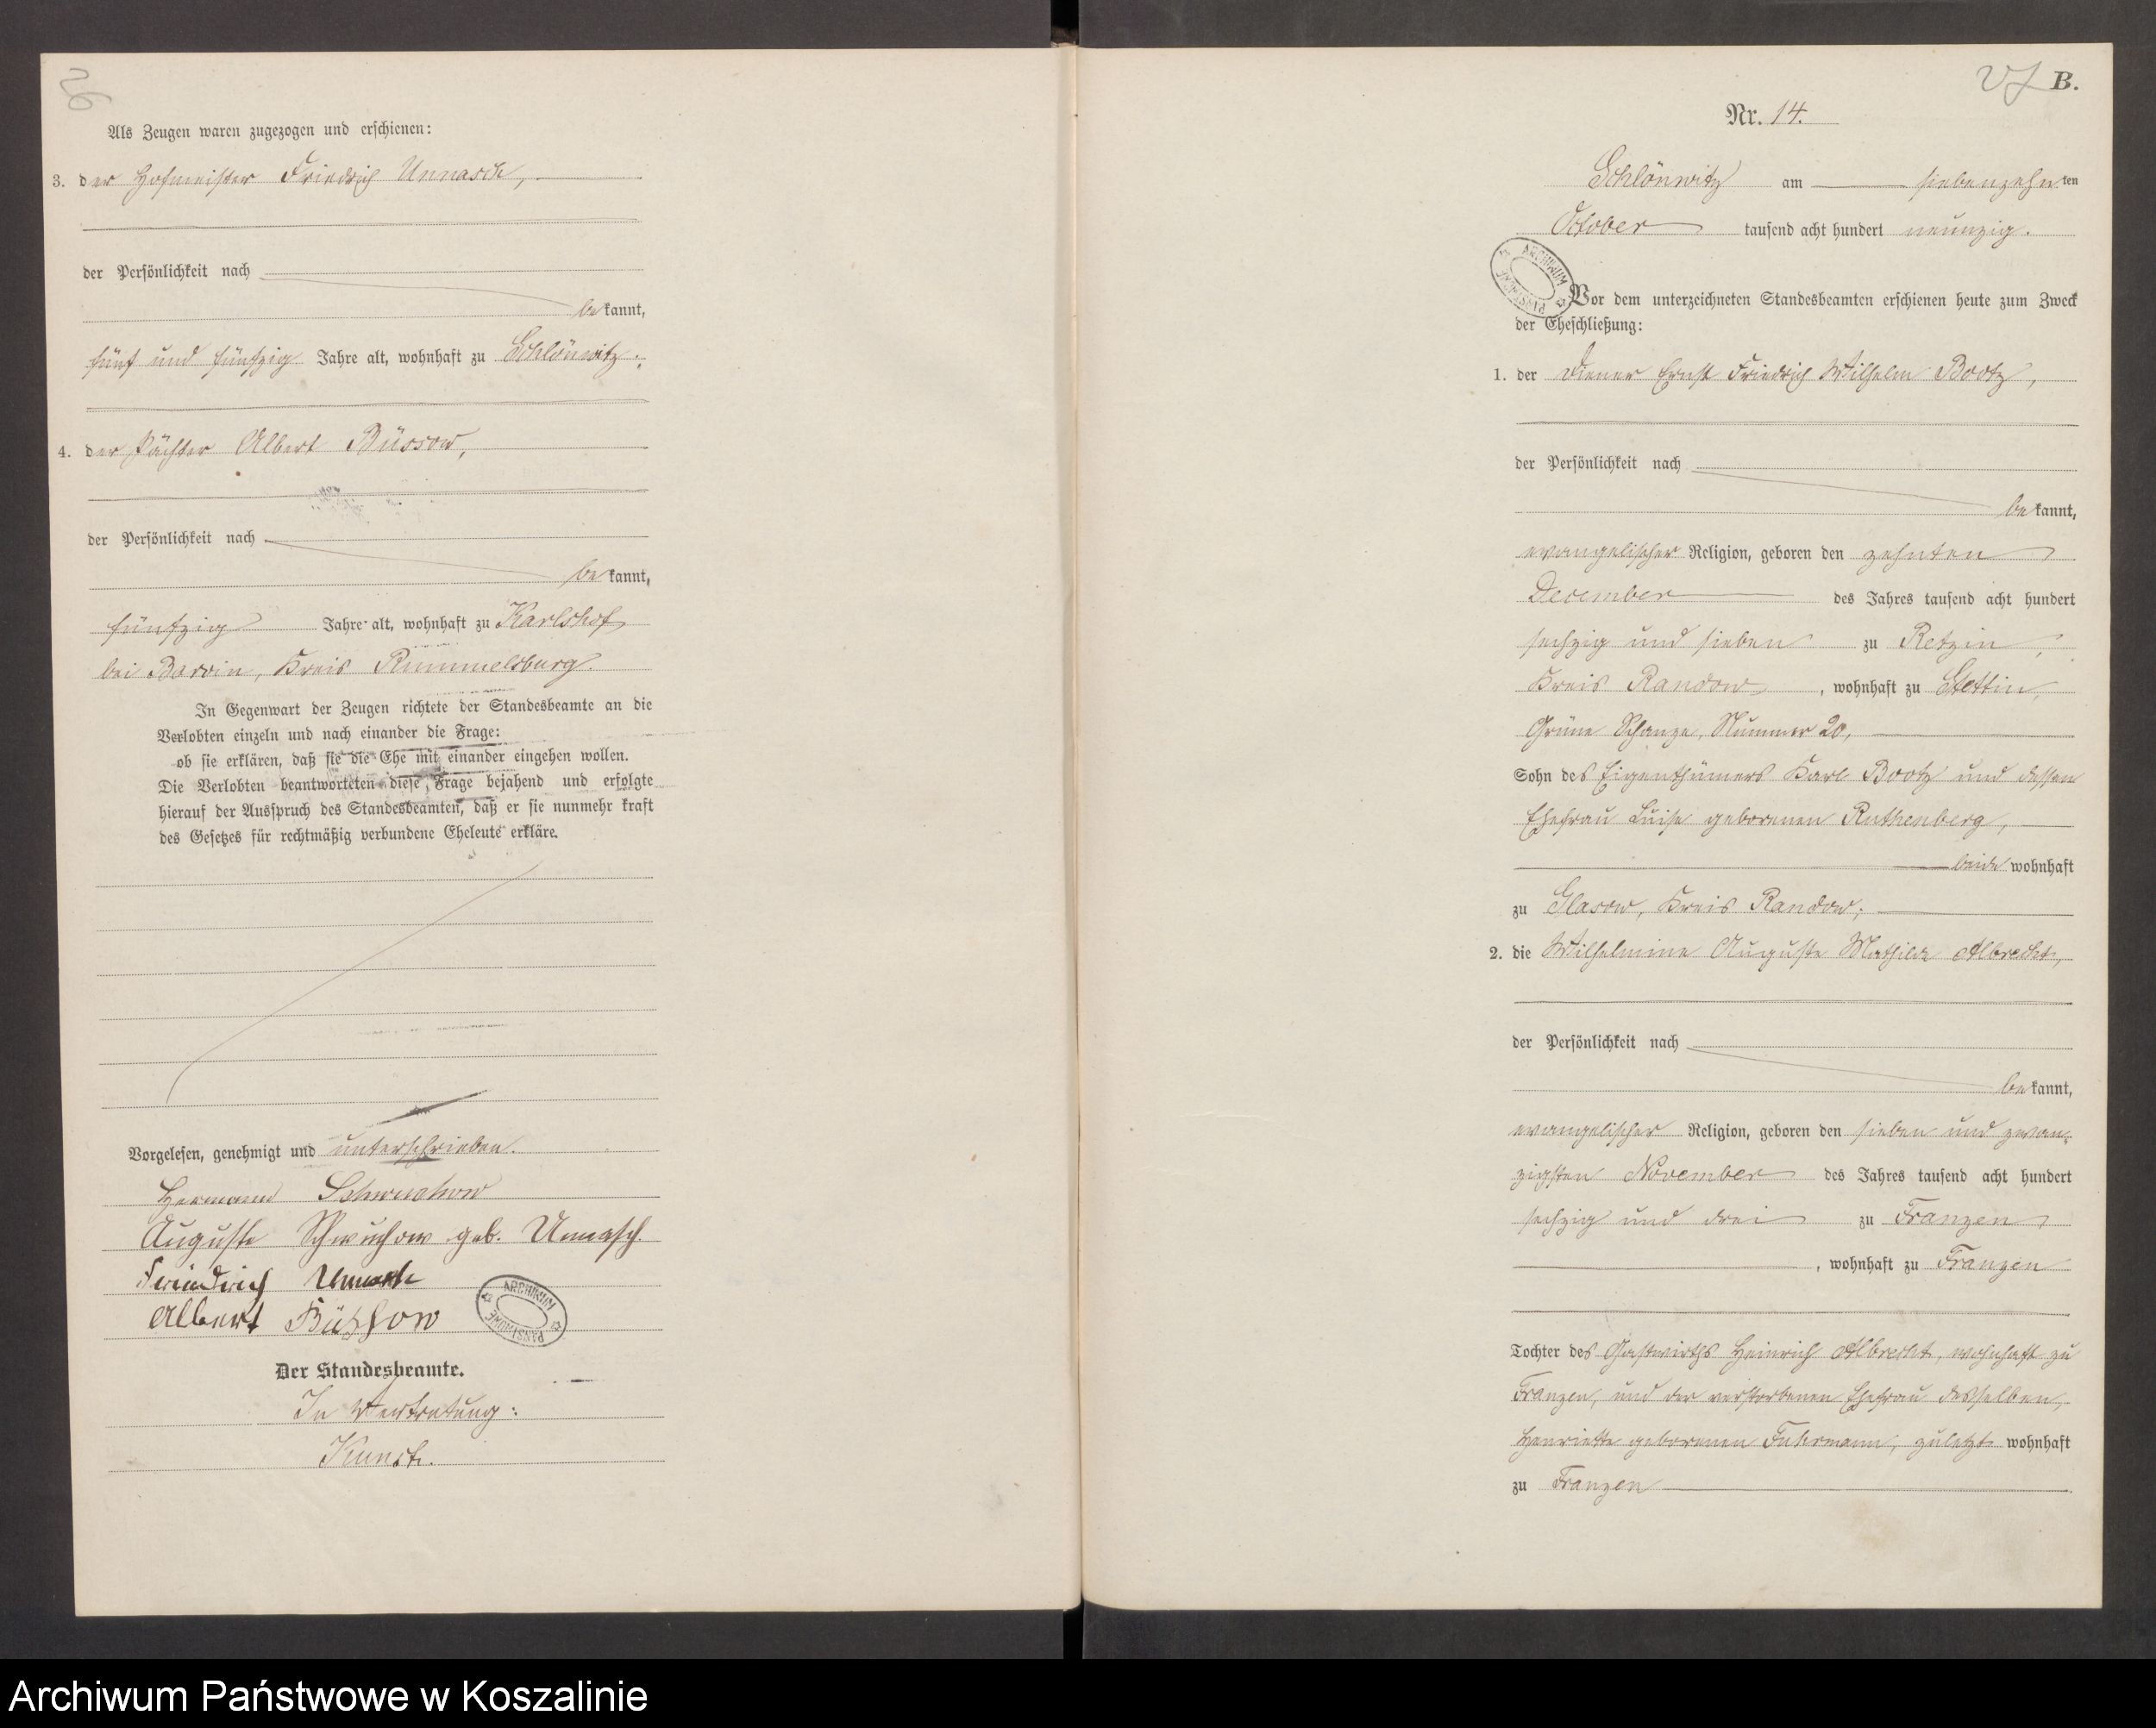 Als Zeugen waren zugezogen und erschienen:
3. der Hofmeister Friedrich Unnasch,
der Persönlichkeit nach
bekannt,
fünf und fünfzig Jahre alt, wohnhaft zu Schlönwitz;
4. der Pächter Albert Büssow,
der Persönlichkeit nach
bekannt,
fünfzig Jahre alt, wohnhaft zu Karlshof
bei Barvin, Kreis Rummelsburg.
In Gegenwart der Zeugen richtete der Standesbeamte an die
Verlobten einzeln und nach einander die Frage:
ob sie erklären, daß sie die Ehe mit einander eingehen wollen.
Die Verlobten beantworteten diese Frage bejahend und erfolgte
hierauf der Ausspruch des Standesbeamten, daß er sie nunmehr kraft
des Gesetzes für rechtmäßig verbundene Eheleute erkläre.
Vorgelesen, genehmigt und unterschrieben.
Hermann Schwuchow
Auguste Schwuchow geb. Unnasch
Friedrich Unnasch
Albert Büssow
ARCHIWUM PAŃSTWOWE
Der Standesbeamte.
In Vertretung:
B.
Nr. 14.
Schlönwitz am siebenzehnten
October tausend acht hundert neunzig.
ARCHIWUM PAŃSTWOWE
Vor dem unterzeichneten Standesbeamten erschienen heute zum Zweck
der Eheschließung:
1. der Diener Ernst Friedrich Wilhelm Bootz,
der Persönlichkeit nach
bekannt,
evangelischer Religion, geboren den zehnten
December des Jahres tausend acht hundert
sechzig und sieben zu Retzin,
Kreis Randow, wohnhaft zu Stettin,
Grüne Schanze, Nummer 20,
Sohn des Eigenthümers Karl Bootz und dessen
Ehefrau Luise geborenen Ruthenberg,
beide wohnhaft
zu Glasow, Kreis Randow;
2. die Wilhelmine Auguste Mathilde Albrecht,
der Persönlichkeit nach
bekannt,
evangelischer Religion, geboren den sieben und zwan-
zigsten November des Jahres tausend acht hundert
sechzig und drei zu Franzen
, wohnhaft zu Franzen
Tochter des Gastwirths Heinrich Albrecht, wohnhaft zu
Franzen, und der verstorbenen Ehefrau desselben,
Henriette geborenen Fuhrmann, zuletzt wohnhaft
zu Franzen
Archiwum Państwowe w Koszalinie